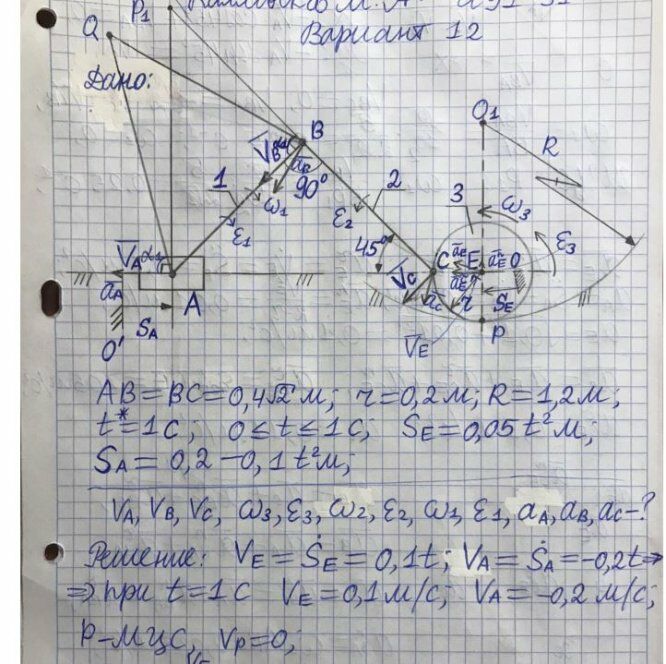 Вариант 12
Дано:
Q P₁ O₁ R
B V̄B ā_B 90°
1 ω₁ ε₁ 2 ε₂ 3 ω₃ ε₃
45°
V̄A α₁ ā_A A S_A O'
C V̄C ā_C E O S_E r P V̄E
AB = BC = 0,4√2 м; r = 0,2 м; R = 1,2 м;
t* = 1 с; 0 ≤ t ≤ 1 с; S_E = 0,05 t² м;
S_A = 0,2 − 0,1 t² м;
V_A, V_B, V_C, ω₃, ε₃, ω₂, ε₂, ω₁, ε₁, a_A, a_B, a_C − ?
Решение: V_E = Ṡ_E = 0,1t; V_A = Ṡ_A = −0,2t ⇒
⇒ при t = 1 с V_E = 0,1 м/с; V_A = −0,2 м/с;
P − МЦС, V_P = 0;